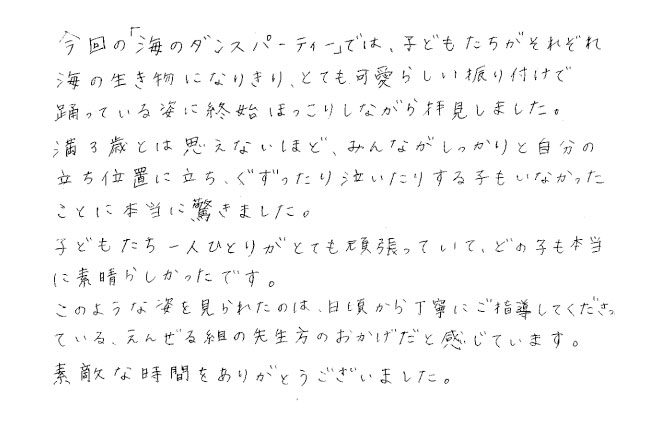 今回の「海のダンスパーティー」では、子どもたちがそれぞれ
海の生き物になりきり、とても可愛らしい振り付けで
踊っている姿に終始ほっこりしながら拝見しました。
満3歳とは思えないほど、みんながしっかりと自分の
立ち位置に立ち、ぐずったり泣いたりする子もいなかった
ことに本当に驚きました。
子どもたち一人ひとりがとても頑張っていて、どの子も本当
に素晴らしかったです。
このような姿を見られたのは、日頃から丁寧にご指導してくださっ
ている、えんぜる組の先生方のおかげだと感じています。
素敵な時間をありがとうございました。